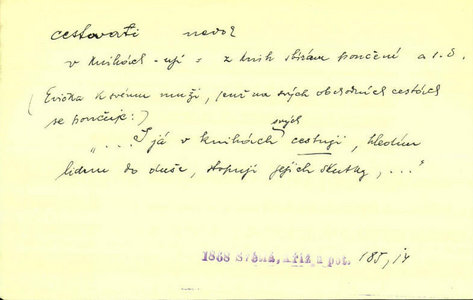 cestovati nedok
v knihách -uji = z knih sbírám poučení a t.d.
(Evička k svému muži, jenž na svých obchodních cestách
se poučuje:)
svých
"... I já v knihách cestuji, hledím
lidem do duše, stopuji jejich skutky, ..."
1868 Světlá, Kříž u pot. 185, 14